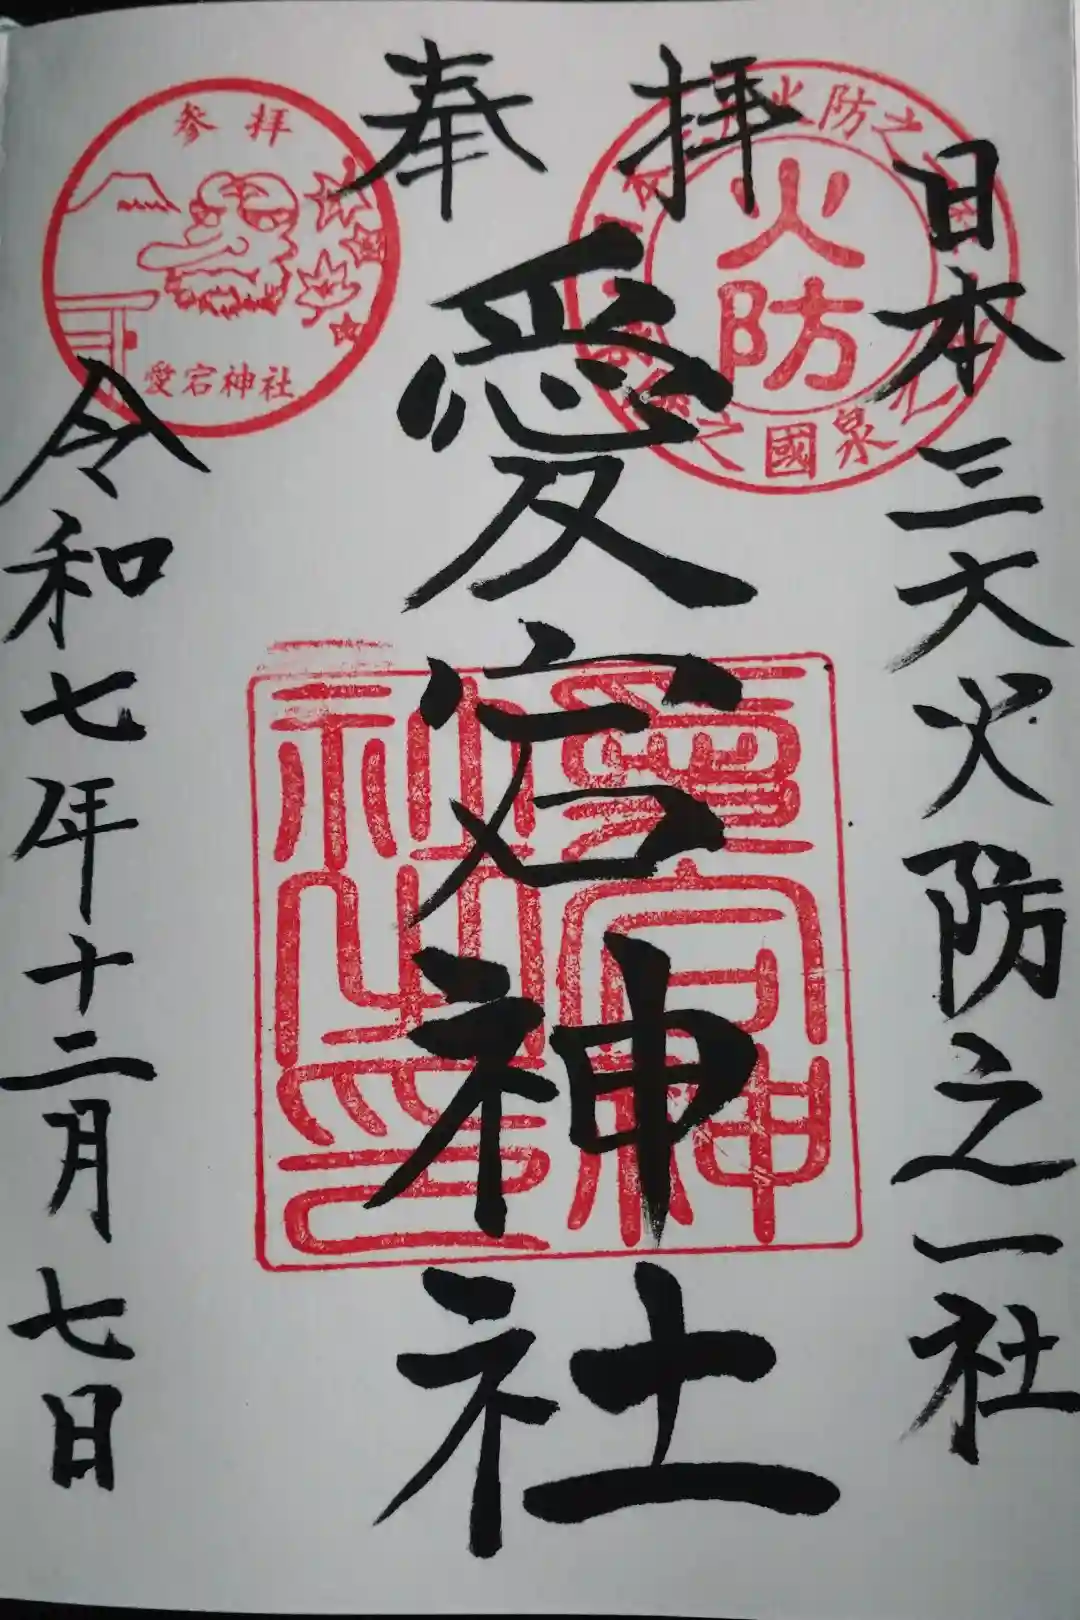 奉拝
日本三大火防之一社
愛宕神社
令和七年十二月七日
参拝
愛宕神社
火防之
火防
之國泉
愛宕神
社之印